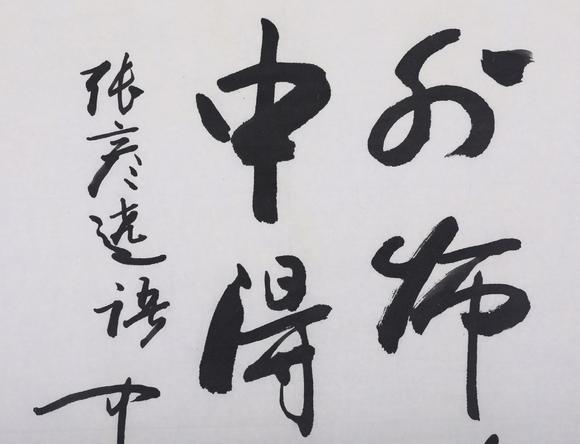 外师
中得
张彦遠语 中